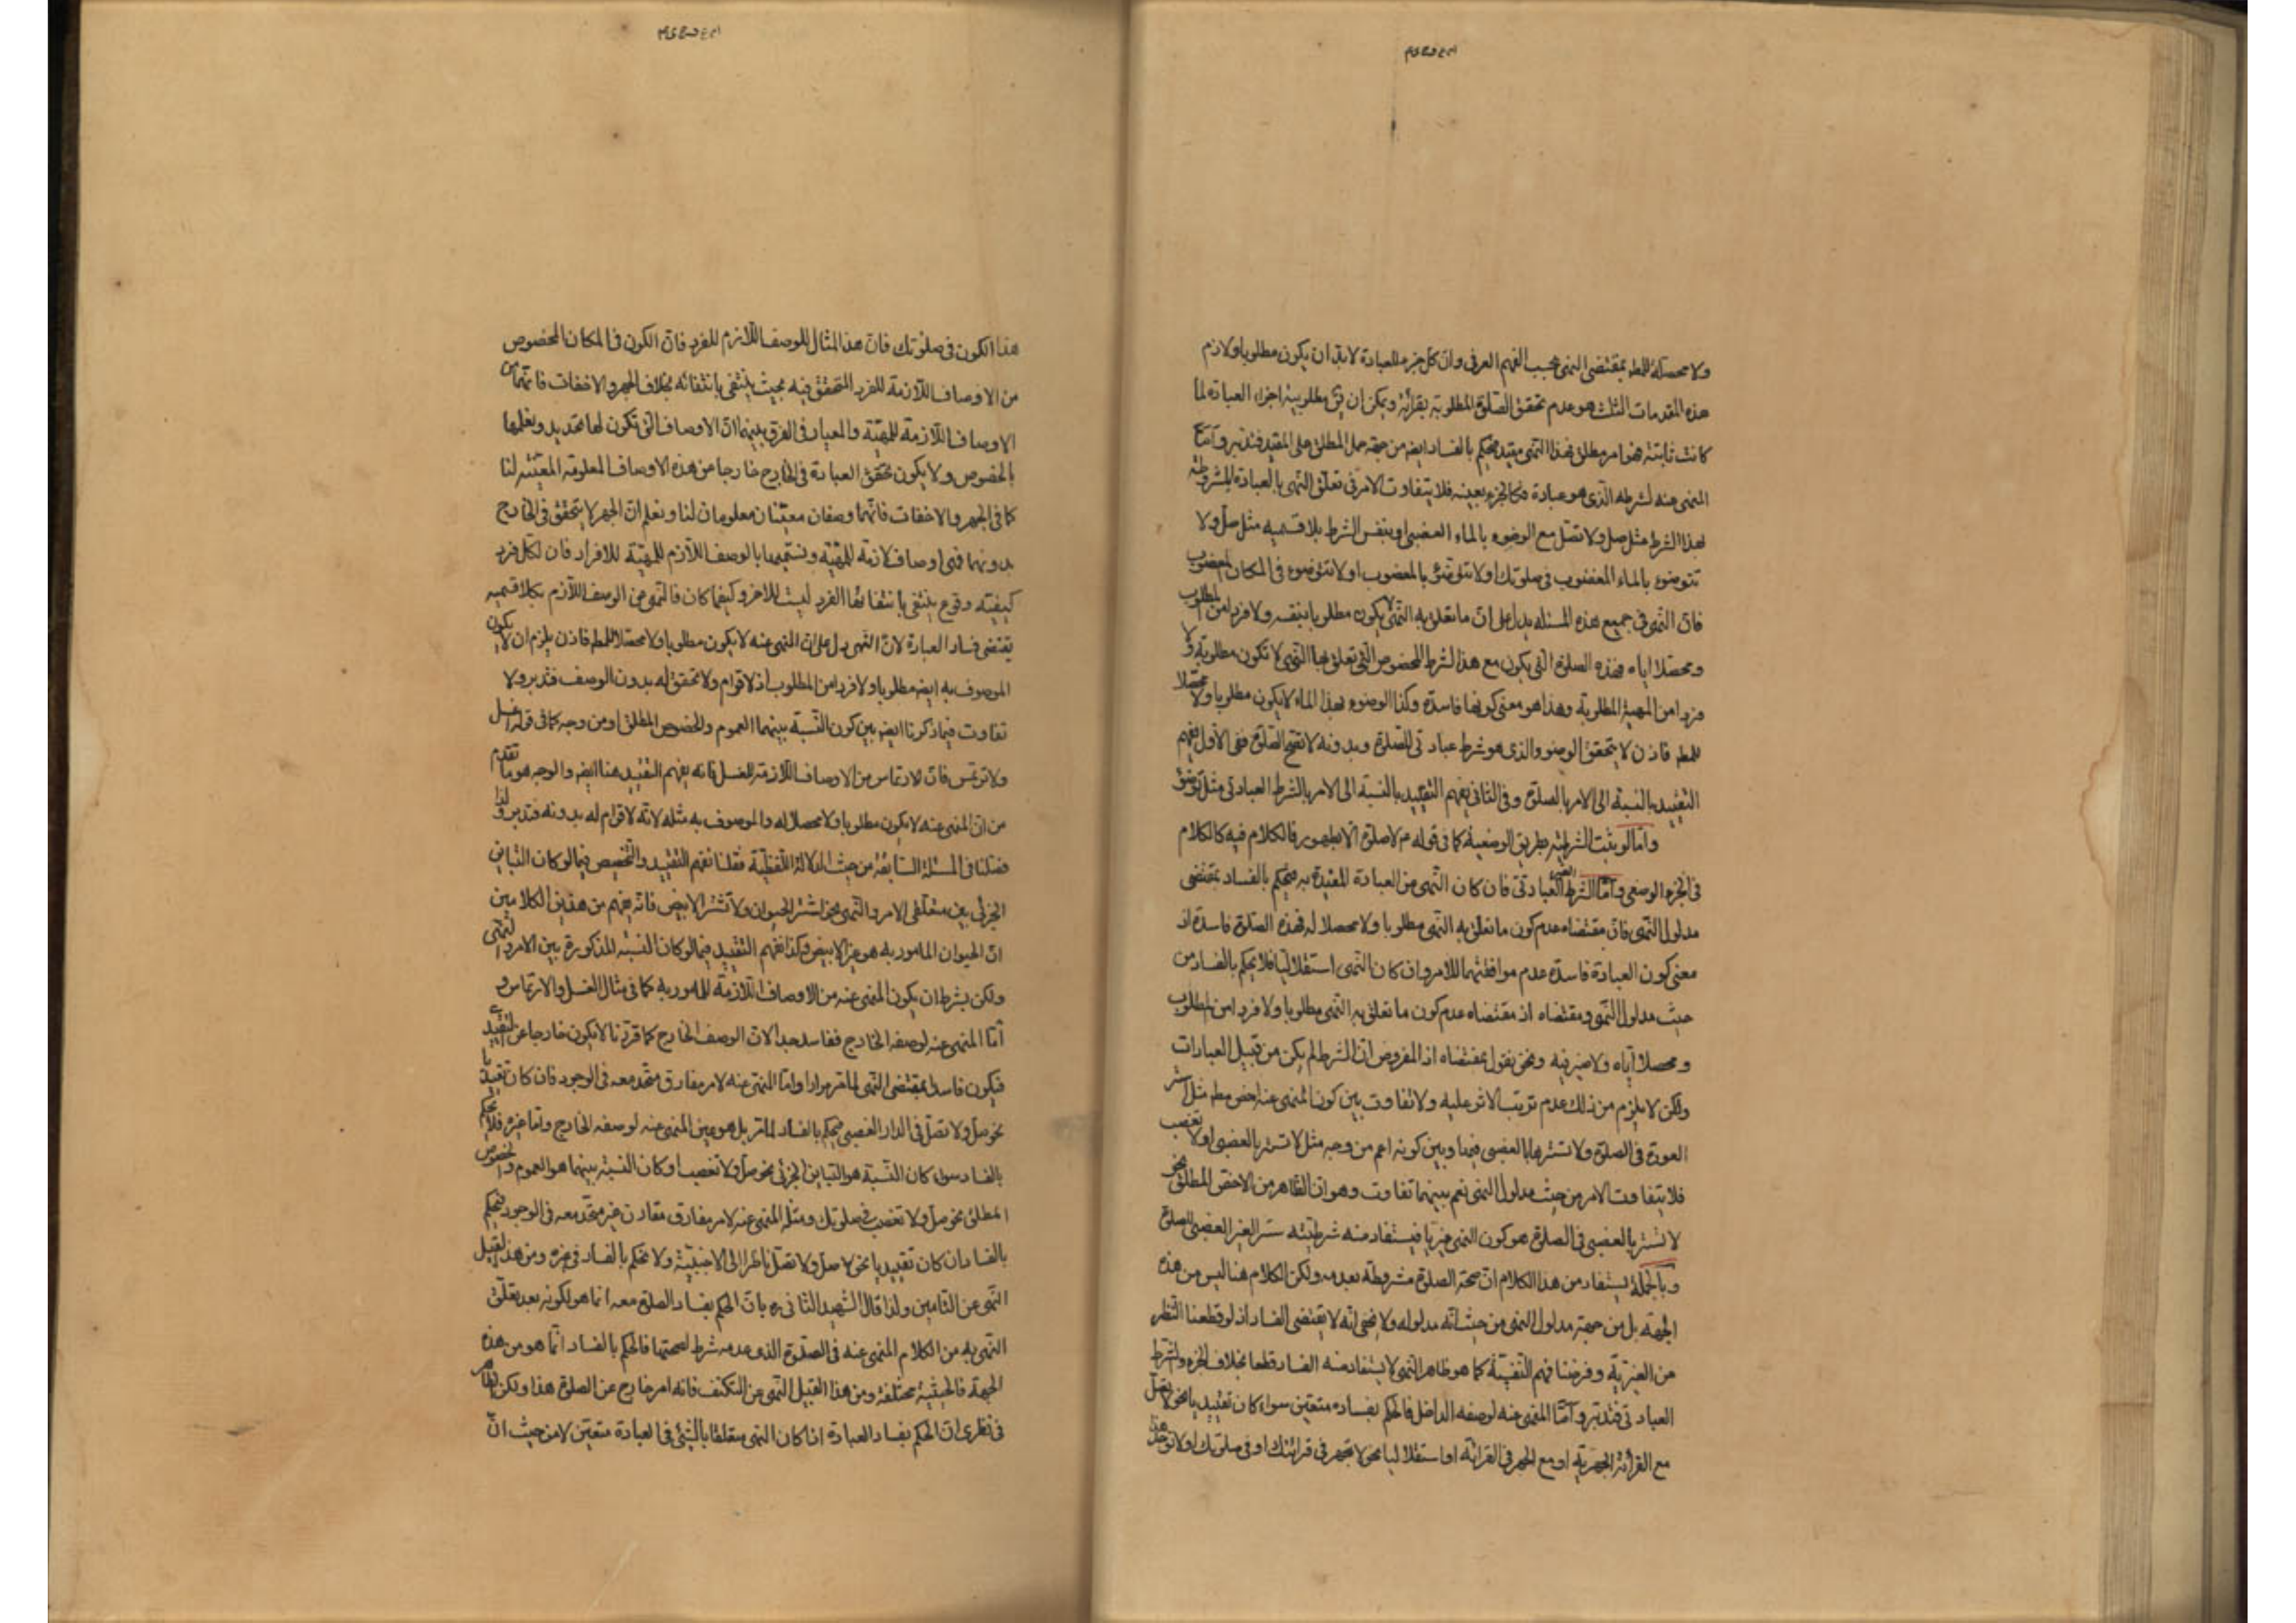 ولا محصلا للمط بمقتضى النهى بحسب الفهم العرفى وان كل جزء للعبادة لابد ان يكون مطلوبا ولازم
هذه المقدمات الثلث هو عدم تحقق الصلوة المطلوبة بقرائة ويمكن ان يق مطلوبية اجزاء العبادة لما
كانت ثابتة هنا مر مطلق فهذا النهى مقيد فيحكم بالفساد ايضا من جهة حمل المطلق على المقيد فتدبر وامّا
المنهى عنه لشرطه الذى هو عبادة فكالجزء بعينه فلا يتفاوت الامر فى تعلق النهى بالعبادة المشروطة
لهذا الشرط مثل صل ولا تصل مع الوضوء بالماء الغصبى او بنفس الشرط بلا قسميه مثل صل ولا
تتوضوء بالماء المغصوب فى صلوتك او لا تتوضئ بالمغصوب او لا تتوضوء فى المكان المغصوب
فان النهى فى جميع هذه المسئلة يدل على ان ما تعلق به النهى لا يكون مطلوبا بنفسه ولا فردا من المطلوب
ومحصلا اياه فهذه الصلوة التى يكون مع هذا الشرط المخصوص التى تعلق بها النهى لا تكون مطلوبة ولا
فردا من المهية المطلوبة وهذا هو معنى كونها فاسدة وكذا الوضوء بهذا الماء لا يكون مطلوبا ولا محصلا
للمط فاذن لا يتحقق الوضوء والذى هو شرط عبادتى للصلوة وبدونه لا تقع الصلوة ففى الاول يفهم
التقييد بالنسبة الى الامر بالصلوة وفى الثانى يفهم التقييد بالنسبة الى الامر بالشرط العبادتى مثل توضؤ
وامّا لو ثبت الشرطية بطريق الوضعية كما فى قوله م لا صلوة الا بطهور فالكلام فيه كالكلام
فى الجزء الوضعى وامّا الشرط الغير العبادتى فان كان النهى من العبادة المقيدة به فيحكم بالفساد بمقتضى
مدلول النهى فان مقتضاه عدم كون ما تعلق به النهى مطلوبا ولا محصلا له فهذه الصلوة فاسدة اذ
معنى كون العبادة فاسدة عدم موافقتها للامر وان كان النهى استقلاليا فلا يحكم بالفساد من
حيث مدلول النهى ومقتضاه اذ مقتضاه عدم كون ما تعلق به النهى مطلوبا ولا فردا من المطلوب
ومحصلا اياه ولا ضير فيه ونحن نقول بمقتضاه اذ المفروض ان الشرط لم يكن من قبيل العبادات
ولكن لا يلزم من ذلك عدم ترتب الاثر عليه ولا تفاوت بين كون المنهى عنه اخص مط مثل استر
العورة فى الصلوة ولا تسترها بالغصبى فيها وبين كونه اعم من وجه مثل لا تستر بالغصبى او لا تغصب
فلا يتفاوت الامر من حيث مدلول النهى نعم بينهما تفاوت وهو ان الظاهر من الاخص المطلق نحو
لا تستر بالغصبى فى الصلوة هو كون النهى غيريا فيستفاد منه شرطيته ستر الغير الغصبى للصلوة
وبالجملة يستفاد من هذا الكلام ان صحة الصلوة مشروطة بعدمه ولكن الكلام هنا ليس من هذه
الجهة بل من جهة مدلول النهى من حيث انه مدلوله ولا يخفى انه لا يقتضى الفساد اذ لو قطعنا النظر
من الغيرية وفرضنا فهم النفسية كما هو ظاهر النهى لا يستفاد منه الفساد قطعا بخلاف الجزء والشرط
العبادتى فتدبر وامّا المنهى عنه لوصفه الداخل فالحكم بفساده متعين سواء كان تقييديا نحو لا تصل
مع القرائة الجهرية او مع الجهر فى القرائة او استقلاليا نحو لا تجهر فى قرائتك او فى صلوتك او لا توجد هذا
هذا الكون فى صلوتك فان هذا المثال للوصف اللازم للفرد فان الكون فى المكان المخصوص
من الاوصاف اللازمة للفرد المتحقق فيه بحيث ينتفى بانتفائه بخلاف الجهر والاخفات فانهما من
الاوصاف اللازمة للمهية والمعيار فى الفرق بينهما ان الاوصاف التى تكون لها تحديد ونعلمها
بالخصوص ولا يكون تحقق العبادة فى الخارج خارجا من هذه الاوصاف المعلومة المعينة لنا
كما فى الجهر والاخفات فانهما وصفان معينان معلومان لنا ونعلم ان الجهر لا يتحقق فى الخارج
بدونهما فهى اوصاف لازمة للمهية ونسميها بالوصف اللازم للمهية للافراد فان لكل فرد
كيفية وقوع ينتفى بانتفائها الفرد ليست للاخر وكيفما كان فالنهى عن الوصف اللازم بكلا قسميه
يقتضى فساد العبادة لان النهى دل على ان المنهى عنه لا يكون مطلوبا ولا محصلا للمط فاذن يلزم ان لا يكون
الموصوف به ايضا مطلوبا ولا فردا من المطلوب اذ لا قوام ولا تحقق له بدون الوصف فتدبر ولا
تفاوت فيما ذكرنا ايضا بين كون النسبة بينهما العموم والخصوص المطلق او من وجه كما فى قوله اغسل
ولا ترتمس فان الارتماس من الاوصاف اللازمة للغسل فانه يفهم التقييد هنا ايضا والوجه هو ما تقدم
من ان المنهى عنه لا يكون مطلوبا ولا محصلا له والموصوف به مثله لانه لا قوام له بدونه فتدبر ولذا
فصلنا فى المسئلة السابقة من حيث الدلالة اللفظية فقلنا نفهم التقييد والتخصيص فيما لو كان التباين
الجزئى بين متعلقى الامر والنهى نحو اشتر الحيوان ولا تشتر الابيض فانه يفهم من هذين الكلامين
ان الحيوان المامور به هو غير الابيض وكذا نفهم التقييد فيما لو كان النسبة المذكورة بين الامر والنهى
ولكن بشرط ان يكون المنهى عنه من الاوصاف اللازمة للمامور به كما فى مثال الغسل والارتماس و
امّا المنهى عنه لوصفه الخارج ففاسد جدا لان الوصف الخارج كما قررنا لا يكون خارجا عن التقييد
فيكون فاسدا بمقتضى النهى لما مر مرارا وامّا المنهى عنه لامر مفارق متحد معه فى الوجود فان كان تقييديا
نحو صل ولا تصل فى الدار الغصبى فيحكم بالفساد لما مر بل هو عين المنهى عنه لوصفه الخارج وامّا غيره فلا يحكم
بالفساد سواء كان النسبة هو التباين الجزئى نحو صل ولا تغصب او كان النسبة بينهما هو العموم والخصوص
المطلق نحو صل ولا تغصب فى صلوتك ومثله المنهى عنه لامر مفارق مقارن غير متحد معه فى الوجود فيحكم
بالفساد ان كان تقييديا نحو لا صل ولا تصل ناظرا الى الاجنبية ولا يحكم بالفساد فى غيره ومن هذا القبيل
النهى عن التامين ولذا قال الشهيد الثانى ره بان الحكم بفساد الصلوة معه انما هو لكونه بعد تعلق
النهى به من الكلام المنهى عنه فى الصلوة الذى عدمه شرط لصحتها فالحكم بالفساد انما هو من هذه
الجهة فالحيثية مختلفة ومن هذا القبيل النهى عن التكتف فانه امر خارج عن الصلوة هذا ولكن الظاهر
فى نظرى ان الحكم بفساد العبادة اذا كان النهى متعلقا بالشئ فى العبادة متعين لا من حيث ان